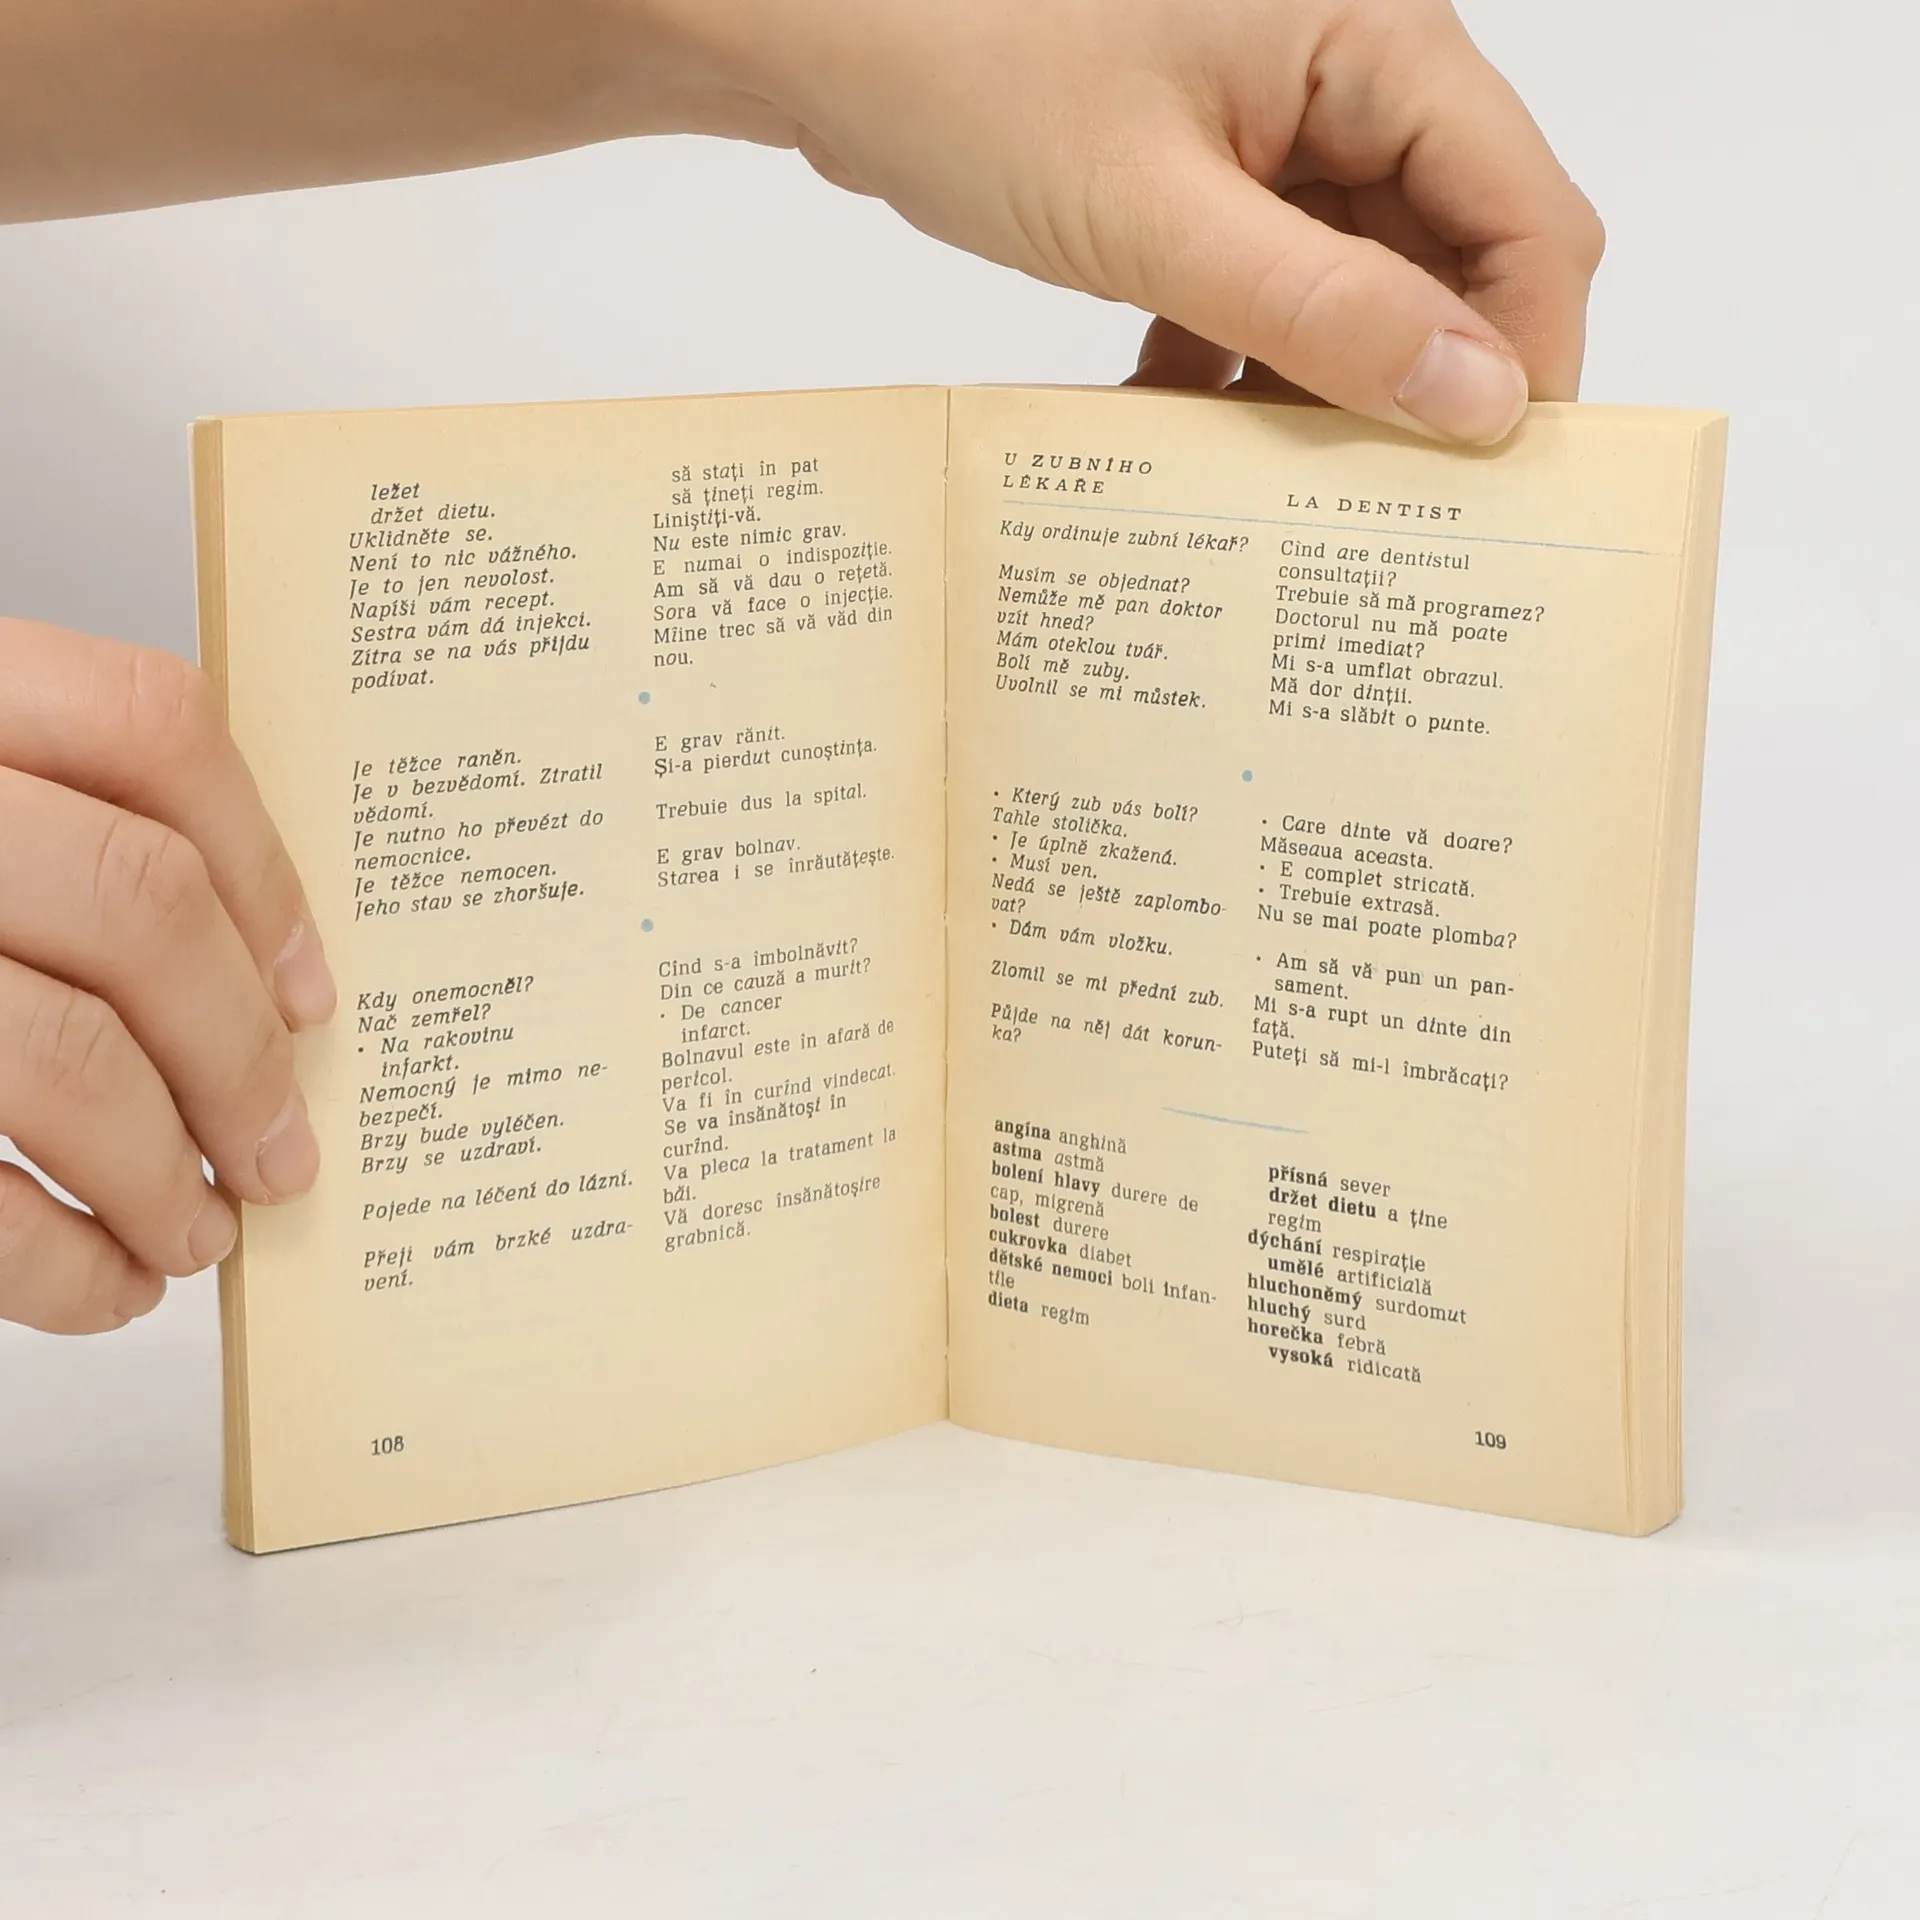 ležet
držet dietu.
Uklidněte se.
Není to nic vážného.
Je to jen nevolost.
Napíši vám recept.
Sestra vám dá injekci.
Zítra se na vás přijdu
podívat.
Je těžce raněn.
Je v bezvědomí. Ztratil
vědomí.
Je nutno ho převézt do
nemocnice.
Je těžce nemocen.
Jeho stav se zhoršuje.
Kdy onemocněl?
Nač zemřel?
• Na rakovinu
infarkt.
Nemocný je mimo ne-
bezpečí.
Brzy bude vyléčen.
Brzy se uzdraví.
Pojede na léčení do lázní.
Přeji vám brzké uzdra-
vení.
să stați în pat
să țineți regim.
Liniștiți-vă.
Nu este nimic grav.
E numai o indispoziție.
Am să vă dau o rețetă.
Sora vă face o injecție.
Mîine trec să vă văd din
nou.
E grav rănit.
Și-a pierdut cunoștința.
Trebuie dus la spital.
E grav bolnav.
Starea i se înrăutățește.
Cînd s-a îmbolnăvit?
Din ce cauză a murit?
• De cancer
infarct.
Bolnavul este în afară de
pericol.
Va fi în curînd vindecat.
Se va însănătoși în
curînd.
Va pleca la tratament la
băi.
Vă doresc însănătoșire
grabnică.
108
U ZUBNÍHO
LÉKAŘE
Kdy ordinuje zubní lékař?
Musím se objednat?
Nemůže mě pan doktor
vzít hned?
Mám oteklou tvář.
Bolí mě zuby.
Uvolnil se mi můstek.
• Který zub vás bolí?
Tahle stolička.
• Je úplně zkažená.
• Musí ven.
Nedá se ještě zaplombo-
vat?
• Dám vám vložku.
Zlomil se mi přední zub.
Půjde na něj dát korun-
ka?
LA DENTIST
Cînd are dentistul
consultații?
Trebuie să mă programez?
Doctorul nu mă poate
primi imediat?
Mi s-a umflat obrazul.
Mă dor dinții.
Mi s-a slăbit o punte.
• Care dinte vă doare?
Măseaua aceasta.
• E complet stricată.
• Trebuie extrasă.
Nu se mai poate plomba?
• Am să vă pun un pan-
sament.
Mi s-a rupt un dinte din
față.
Puteți să mi-l îmbrăcați?
angína anghină
astma astmă
bolení hlavy durere de
cap, migrenă
bolest durere
cukrovka diabet
dětské nemoci boli infan-
tile
dieta regim
přísná sever
držet dietu a ține
regim
dýchání respirație
umělé artificială
hluchoněmý surdomut
hluchý surd
horečka febră
vysoká ridicată
109